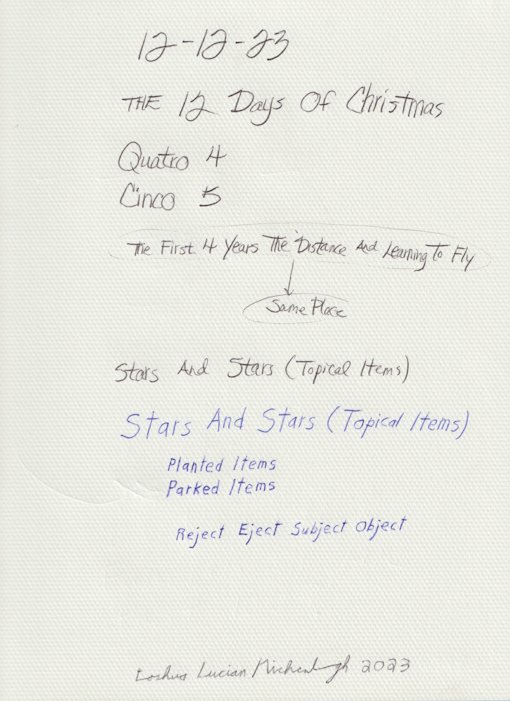 12-12-23
THE 12 Days Of Christmas
Quatro 4
Cinco 5
The First 4 Years The Distance And Learning To Fly
Same Place
Stars And Stars (Topical Items)
Stars And Stars (Topical Items)
Planted Items
Parked Items
Reject Eject Subject Object
Lucian 2023